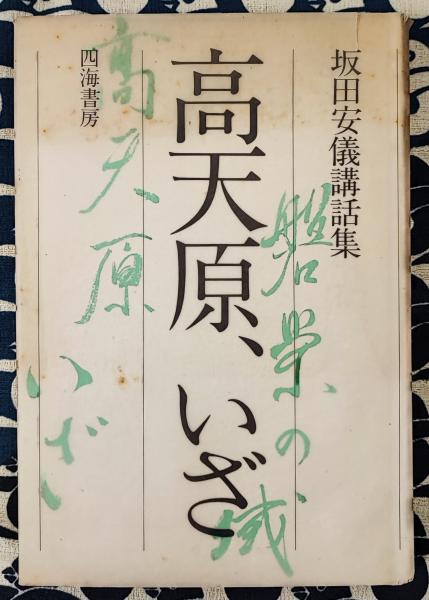 坂田安儀講話集
高天原、いざ
四海書房
磐境の域
高天原
いざ